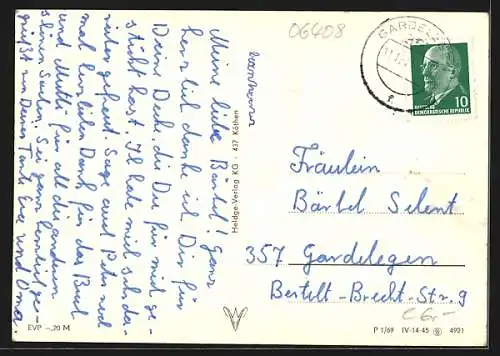 06408
Meine liebe Bärbel! Ganz
herzlich danke ich Dir für
Deine Decke, die Du für mich ge-
stickt hast. Ich habe mich sehr da-
rüber gefreut. Sage auch Peter noch
mal herzlichen Dank für das Buch
und Mutti für all die anderen
schönen Sachen. Sei ganz herzlich ge-
grüßt von Deiner Tante Eva und Oma.
Heldge-Verlag KG · 437 Köthen
GARDELEGEN
10
DEUTSCHE
DEMOKRATISCHE REPUBLIK
Fräulein
Bärbel Selent
357 Gardelegen
Bertelt-Brecht-Str. 9
EVP -,20 M
P 1/69 IV-14-45 4921